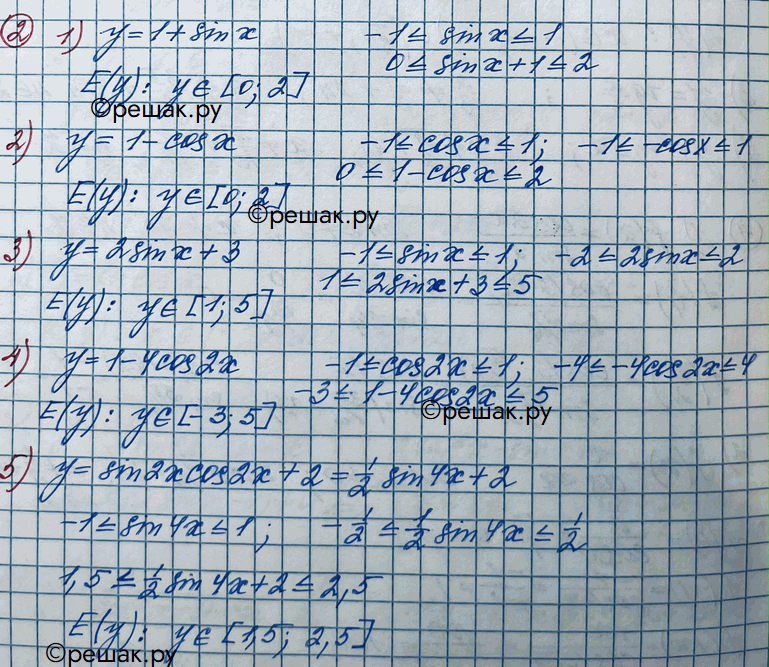 ② 1) y = 1 + sin x   -1 ≤ sin x ≤ 1
0 ≤ sin x + 1 ≤ 2
E(y): y ∈ [0; 2]
©решак.ру
2) y = 1 - cos x   -1 ≤ cos x ≤ 1;   -1 ≤ -cos x ≤ 1
0 ≤ 1 - cos x ≤ 2
E(y): y ∈ [0; 2]
©решак.ру
3) y = 2 sin x + 3   -1 ≤ sin x ≤ 1;   -2 ≤ 2 sin x ≤ 2
1 ≤ 2 sin x + 3 ≤ 5
E(y): y ∈ [1; 5]
4) y = 1 - 4 cos 2x   -1 ≤ cos 2x ≤ 1;   -4 ≤ -4 cos 2x ≤ 4
-3 ≤ 1 - 4 cos 2x ≤ 5
E(y): y ∈ [-3; 5]
©решак.ру
5) y = sin 2x cos 2x + 2 = 1/2 sin 4x + 2
-1 ≤ sin 4x ≤ 1;   -1/2 ≤ 1/2 sin 4x ≤ 1/2
1,5 ≤ 1/2 sin 4x + 2 ≤ 2,5
E(y): y ∈ [1,5; 2,5]
©решак.ру